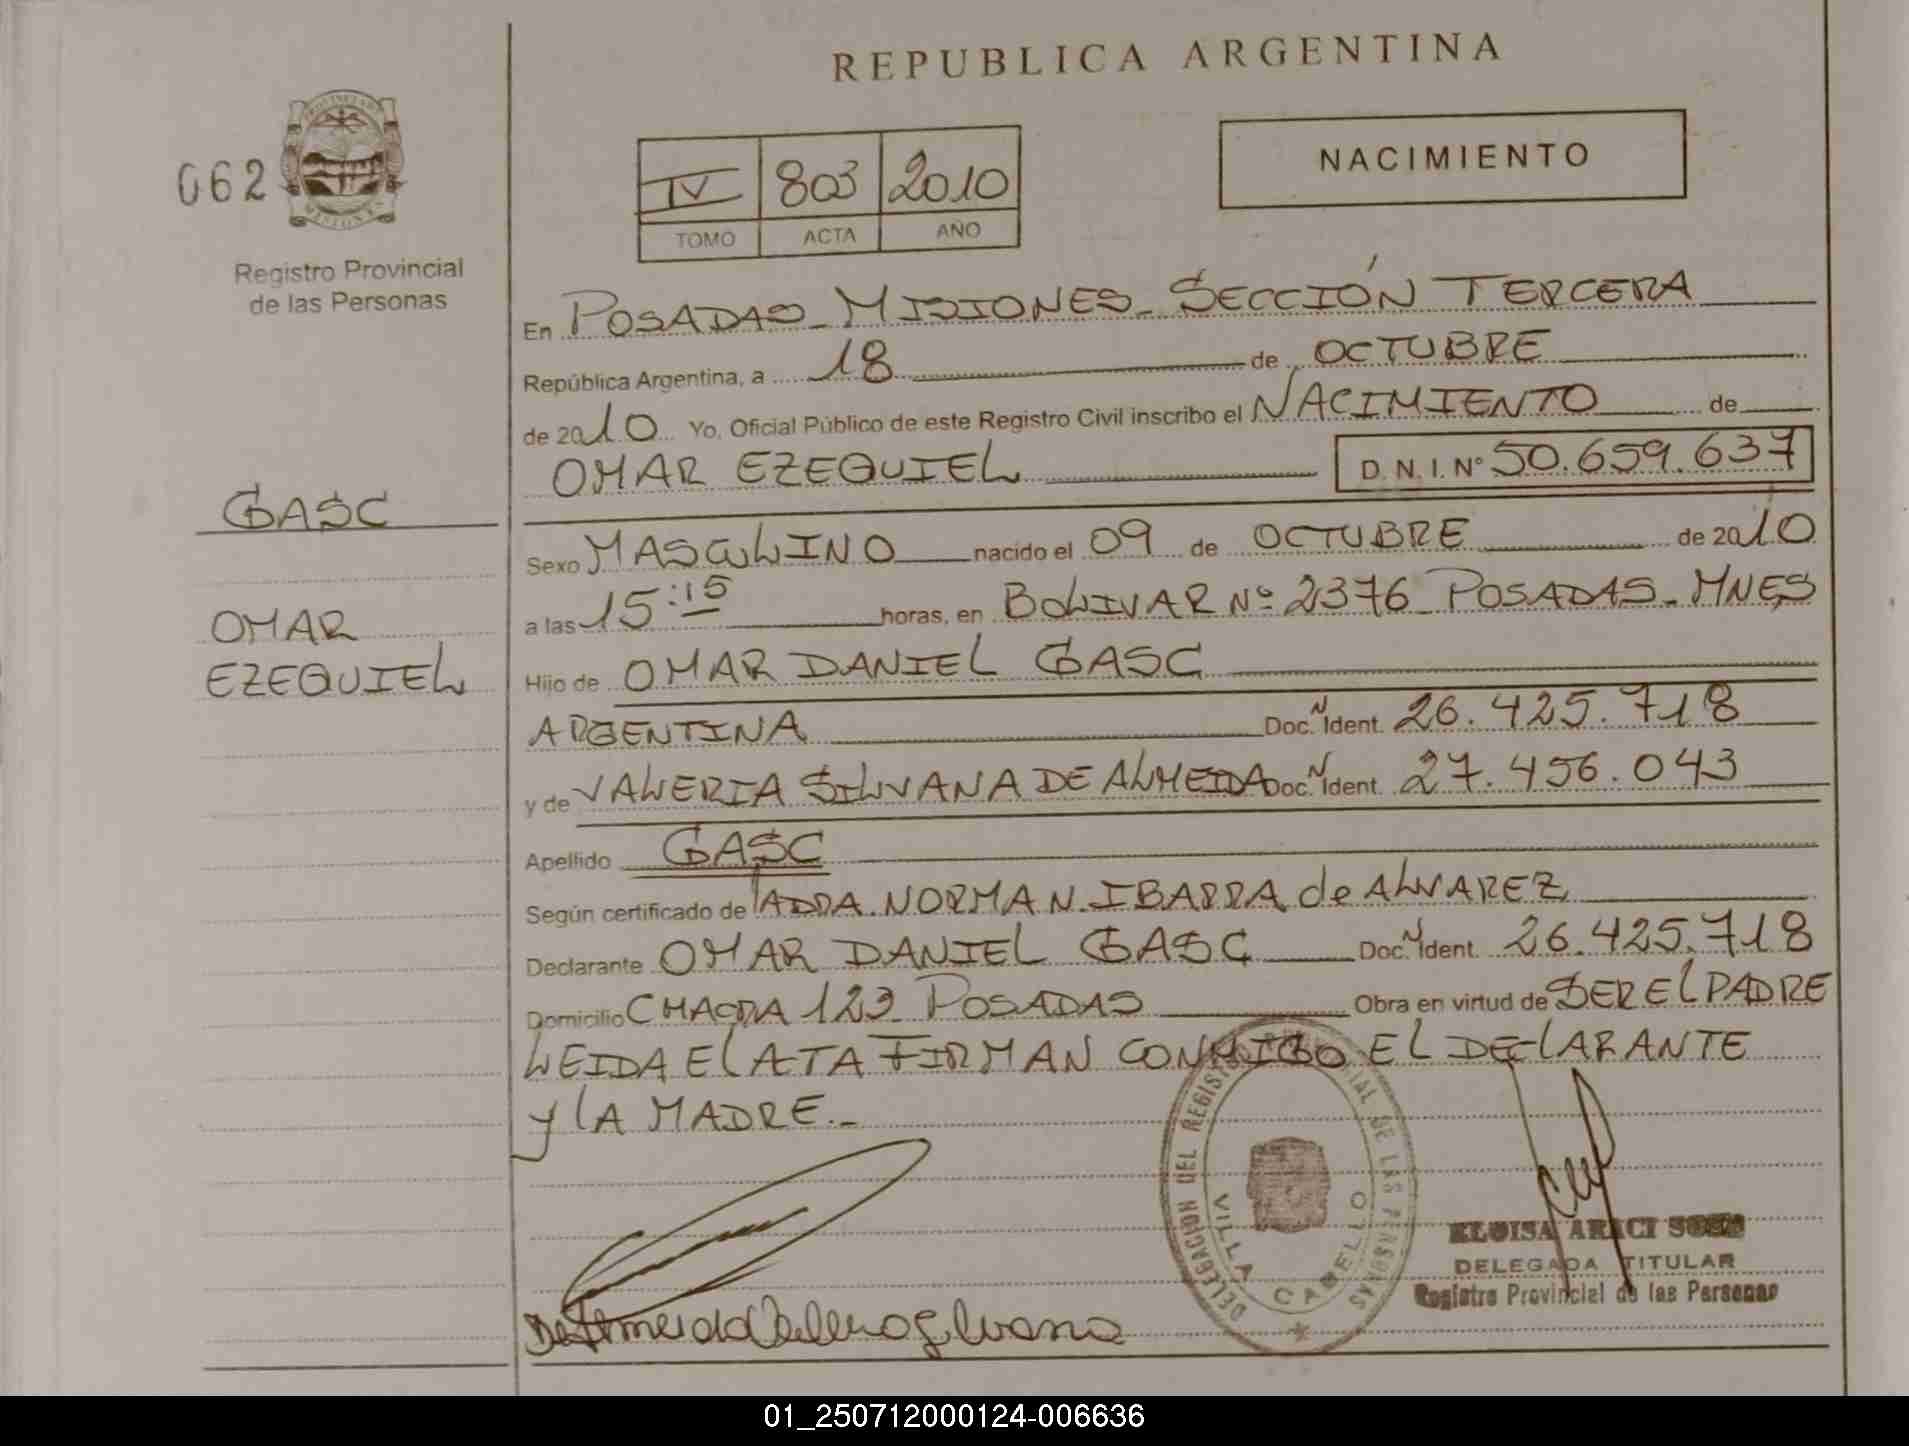 REPUBLICA ARGENTINA
062
PROVINCIA DE MISIONES
Registro Provincial
de las Personas
IV 803 2010
TOMO ACTA AÑO
NACIMIENTO
En POSADAS - MISIONES - SECCIÓN TERCERA
República Argentina, a 18 de OCTUBRE
de 2010 Yo, Oficial Público de este Registro Civil inscribo el NACIMIENTO de
OMAR EZEQUIEL D.N.I. N° 50.659.637
GASC
OMAR
EZEQUIEL
Sexo MASCULINO nacido el 09 de OCTUBRE de 2010
a las 15:15 horas, en BOLIVAR Nº 2376 POSADAS - MNES
Hijo de OMAR DANIEL GASC
ARGENTINA Doc. N Ident. 26.425.718
y de VALERIA SILVANA DE ALMEIDA Doc. N Ident. 27.456.043
Apellido GASC
Según certificado de lADRA. NORMA N. IBARRA de ALVAREZ
Declarante OMAR DANIEL GASC Doc. N Ident. 26.425.718
Domicilio CHACRA 123 POSADAS Obra en virtud de SER El PADRE
LEIDA El ATA FIRMAN CONMIGO EL DEClARANTE
y lA MADRE.-
DELEGACION DEL REGISTRO PROVINCIAL DE LAS PERSONAS
VILLA CABELLO
ELOISA ARACI SOSA
DELEGADA TITULAR
Registro Provincial de las Personas
De Almeida Valeria Silvana
01_250712000124-006636